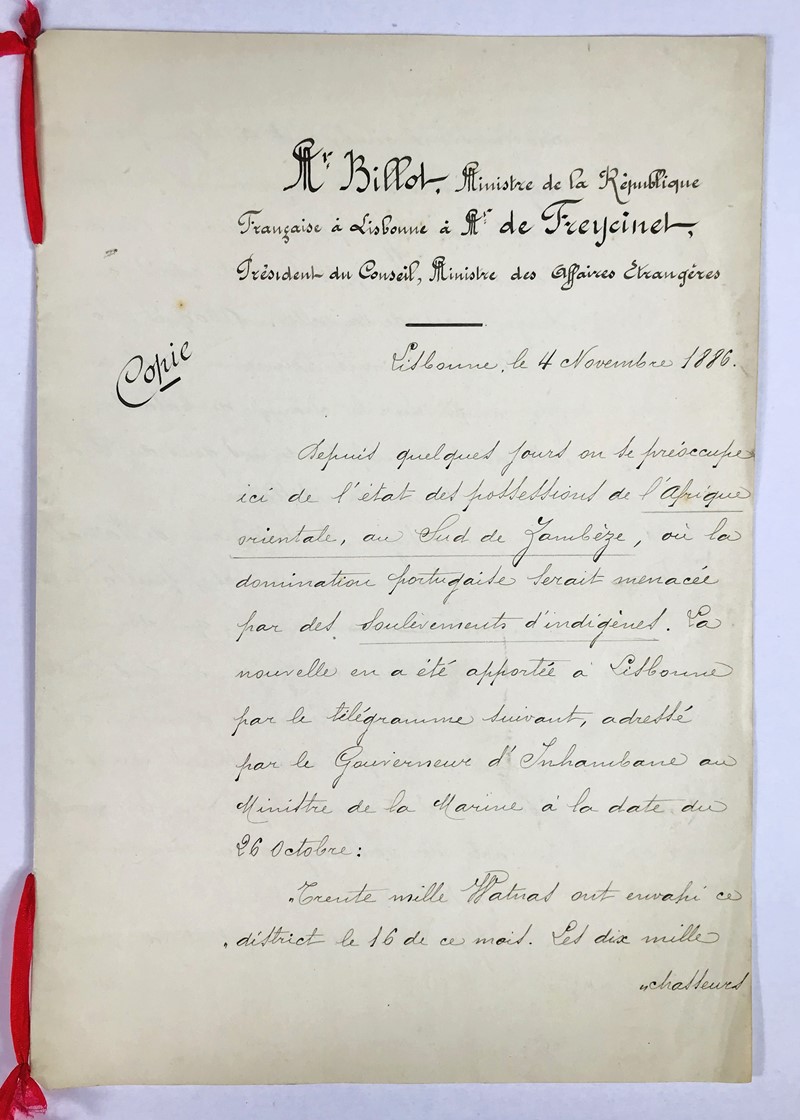 Mr Billot, Ministre de la République
Française à Lisbonne à Mr de Freycinet,
Président du Conseil, Ministre des Affaires Etrangères
Copie
Lisbonne, le 4 Novembre 1886.
Depuis quelques jours on se préoccupe
ici de l'état des possessions de l'Afrique
orientale, au Sud de Zambèze, où la
domination portugaise serait menacée
par des soulèvements d'indigènes. La
nouvelle en a été apportée à Lisbonne
par le télégramme suivant, adressé
par le Gouverneur d'Inhambane au
Ministre de la Marine à la date du
26 Octobre:
"Trente mille Watuas ont envahi ce
"district le 16 de ce mois. Les dix mille
"chasseurs